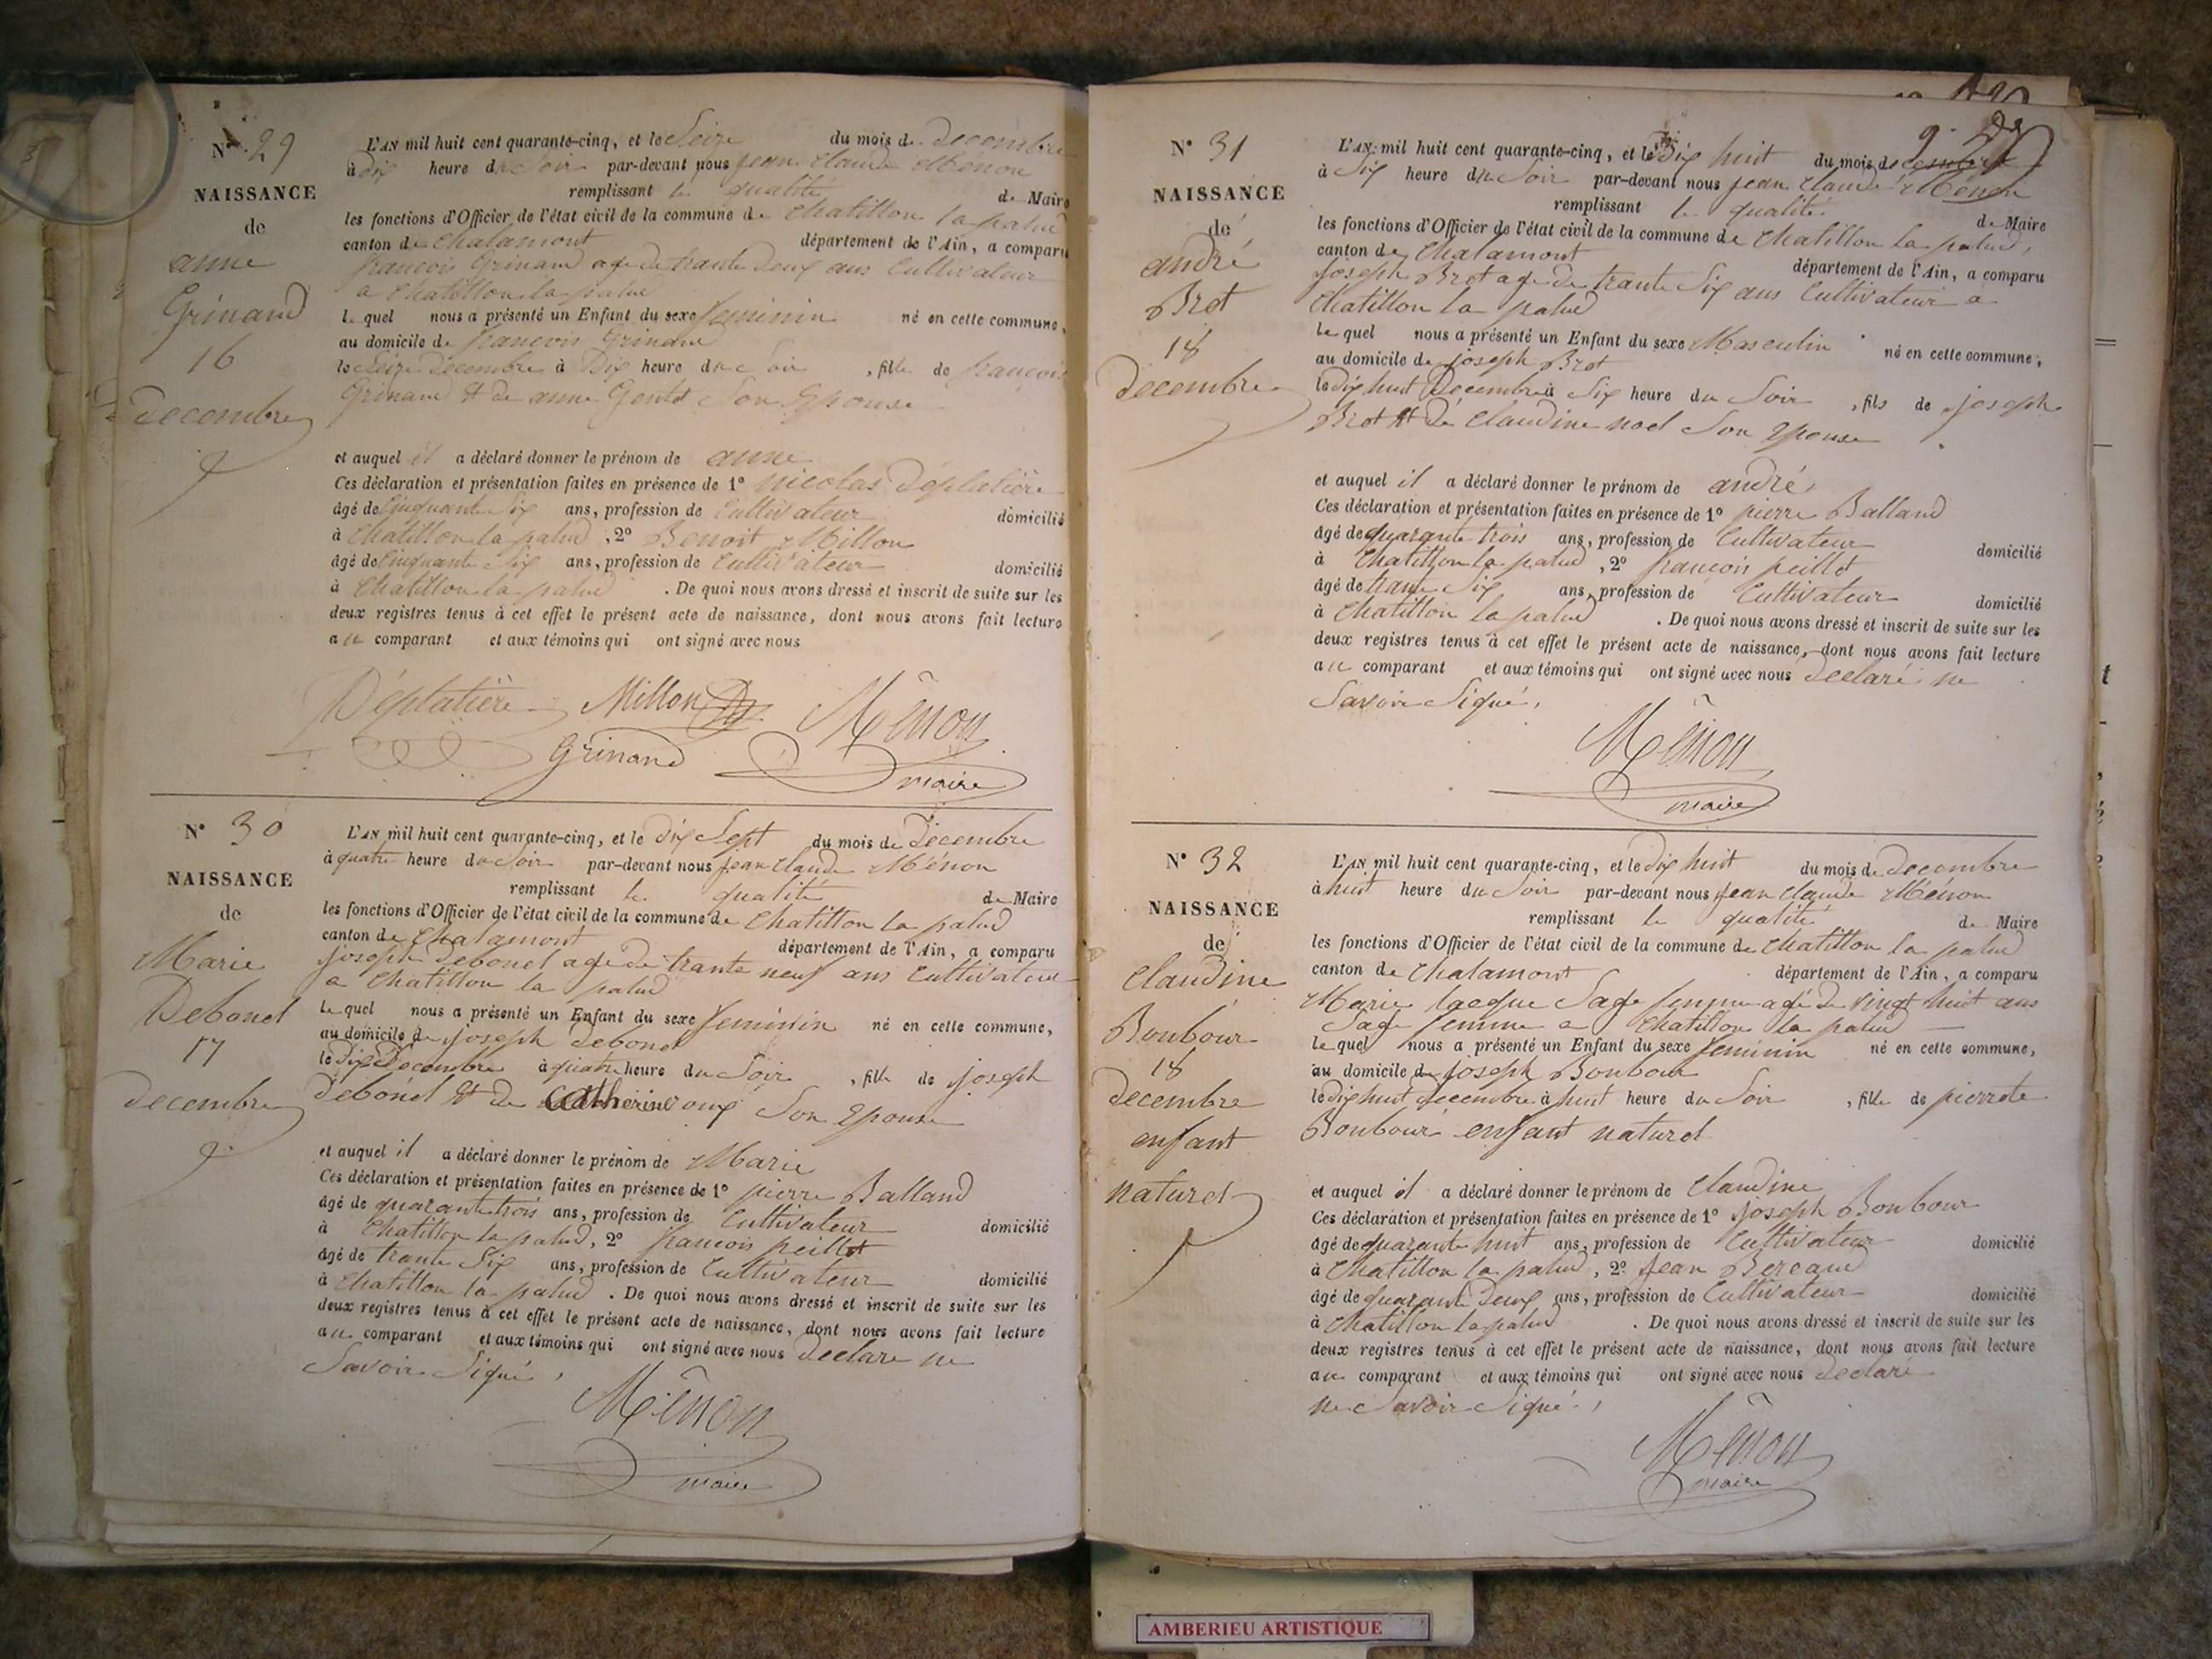 N° 29
NAISSANCE
de
anne
Grinand
16
decembre
L'AN mil huit cent quarante-cinq, et le Seize du mois de decembre
à dix heure du Soir par-devant nous jean claude Ménon
remplissant la qualité de Maire
les fonctions d'Officier de l'état civil de la commune de chatillon la palud
canton de chalamont département de l'Ain, a comparu
francois Grinand age de trante deux ans Cultivateur
a chatillon la palud
le quel nous a présenté un Enfant du sexe feminin né en cette commune,
au domicile de francois Grinand
le Seize decembre à Dix heure du Soir, fille de francois
Grinand et de anne Son Epouse
et auquel il a déclaré donner le prénom de anne
Ces déclaration et présentation faites en présence de 1° nicolas Déplatière
âgé de Cinquante Six ans, profession de Cultivateur domicilié
à chatillon la palud, 2° Benoit Millon
âgé de Cinquante Six ans, profession de Cultivateur domicilié
à chatillon la palud. De quoi nous avons dressé et inscrit de suite sur les
deux registres tenus à cet effet le présent acte de naissance, dont nous avons fait lecture
au comparant et aux témoins qui ont signé avec nous
Déplatière Millon Ménon
Grinand maire
N° 30
NAISSANCE
de
Marie
Debonel
17
decembre
L'AN mil huit cent quarante-cinq, et le dix Sept du mois de Decembre
à quatre heure du Soir par-devant nous jean claude Ménon
remplissant la qualité de Maire
les fonctions d'Officier de l'état civil de la commune de chatillon la palud
canton de chalamont département de l'Ain, a comparu
joseph Debonel age de trante neuf ans Cultivateur
a chatillon la palud
le quel nous a présenté un Enfant du sexe feminin né en cette commune,
au domicile de joseph Debonel
le Decembre à quatre heure du Soir, fille de joseph
Debonel et de Catherine Son Epouse
et auquel il a déclaré donner le prénom de Marie
Ces déclaration et présentation faites en présence de 1° pierre Balland
âgé de quarante trois ans, profession de Cultivateur domicilié
à Chatillon la palud, 2° francois peillot
âgé de trante Six ans, profession de Cultivateur domicilié
à chatillon la palud. De quoi nous avons dressé et inscrit de suite sur les
deux registres tenus à cet effet le présent acte de naissance, dont nous avons fait lecture
au comparant et aux témoins qui ont signé avec nous declare ne
Savoir Signé,
Ménon
maire
N° 31
NAISSANCE
de
andré
Brot
18
decembre
L'AN mil huit cent quarante-cinq, et le Dix huit du mois de
à Six heure du Soir par-devant nous jean claude Ménon
remplissant la qualité de Maire
les fonctions d'Officier de l'état civil de la commune de chatillon la palud,
canton de Chalamont département de l'Ain, a comparu
joseph Brot age de trante Six ans Cultivateur a
Chatillon la palud
le quel nous a présenté un Enfant du sexe Masculin né en cette commune,
au domicile de joseph Brot
le dix huit Decembre à Six heure du Soir, fils de joseph
Brot et de claudine noel Son Epouse
et auquel il a déclaré donner le prénom de andré
Ces déclaration et présentation faites en présence de 1° pierre Balland
âgé de quarante trois ans, profession de Cultivateur domicilié
à Chatillon la palud, 2° francois peillot
âgé de trante Six ans, profession de Cultivateur domicilié
à Chatillon la palud. De quoi nous avons dressé et inscrit de suite sur les
deux registres tenus à cet effet le présent acte de naissance, dont nous avons fait lecture
au comparant et aux témoins qui ont signé avec nous declaré ne
Savoir Signé,
Ménon
maire
N° 32
NAISSANCE
de
claudine
Bonbour
18
decembre
enfant
naturel
L'AN mil huit cent quarante-cinq, et le dix huit du mois de decembre
à huit heure du Soir par-devant nous jean claude Ménon
remplissant la qualité de Maire
les fonctions d'Officier de l'état civil de la commune de chatillon la palud
canton de Chalamont département de l'Ain, a comparu
Marie lacque Sage femme agé de vingt huit ans
Sage femme a Chatillon la palud
le quel nous a présenté un Enfant du sexe feminin né en cette commune,
au domicile de joseph Bonbour
le dix huit decembre à huit heure du Soir, fille de pierrete
Bonbour enfant naturel
et auquel il a déclaré donner le prénom de Claudine
Ces déclaration et présentation faites en présence de 1° joseph Bonbour
âgé de quarante huit ans, profession de Cultivateur domicilié
à Chatillon la palud, 2° jean
âgé de quarante Deux ans, profession de Cultivateur domicilié
à Chatillon la palud. De quoi nous avons dressé et inscrit de suite sur les
deux registres tenus à cet effet le présent acte de naissance, dont nous avons fait lecture
au comparant et aux témoins qui ont signé avec nous declaré
ne Savoir Signé,
Ménon
maire
AMBERIEU ARTISTIQUE